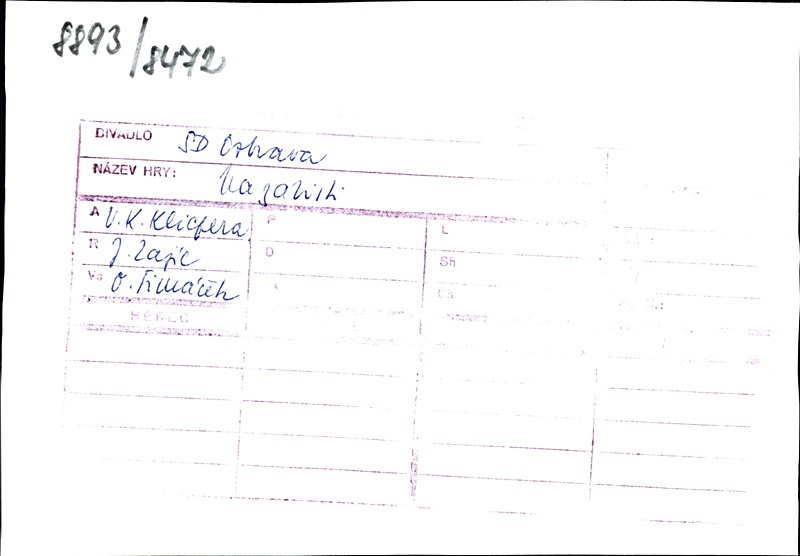 8893/8472
DIVADLO SD Ostrava
NÁZEV HRY:
A V. K. Klicpera
R J. Zajíc
Vs O. Šimáček
HEREC
P
D
L
Sh